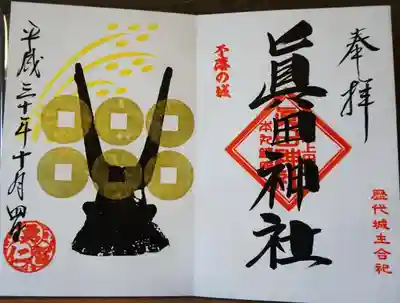 奉拝
不落の城
眞田神社
歴代城主合祀
平成三十年十月四日